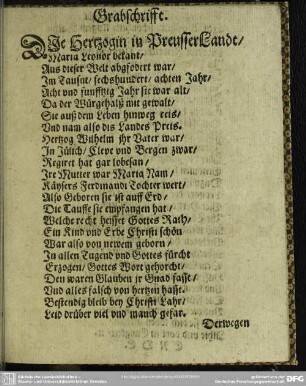 Grabschrifft.
DIe Hertzogin in PreusserLandt/
Maria Leonor bekant/
Aus dieser Welt abgfodert war/
Im Tausnt/ sechshundert/ achten Jahr/
Acht vnd funfftzig Jahr sie war alt/
Da der Würgehalß mit gewalt/
Sie auß dem Leben hinweg reis/
Vnd nam also des Landes Preis.
Hertzog Wilhelm ihr Vater war/
In Jülich/ Cleve vnd Bergen zwar/
Regiret hat gar lobesan/
Ire Mutter war Maria Nam/
Käysers Ferdinandi Tochter wert/
Also Geboren sie ist auff Erd/
Die Tauffe sie empfangen hat/
Welchs recht heisset Gottes Rath/
Ein Kind vnd Erbe Christi schön
War also von newem geborn/
In allen Tugend vnd Gottes fürcht
Erzogen/ Gottes Wort gehorcht/
Den waren Glauben jr Gnad fasst/
Vnd alles falsch von hertzen hasst.
Bestendig bleib bey Christi Lahr/
Leid drüber viel vnd manch gefar.
Derwegen